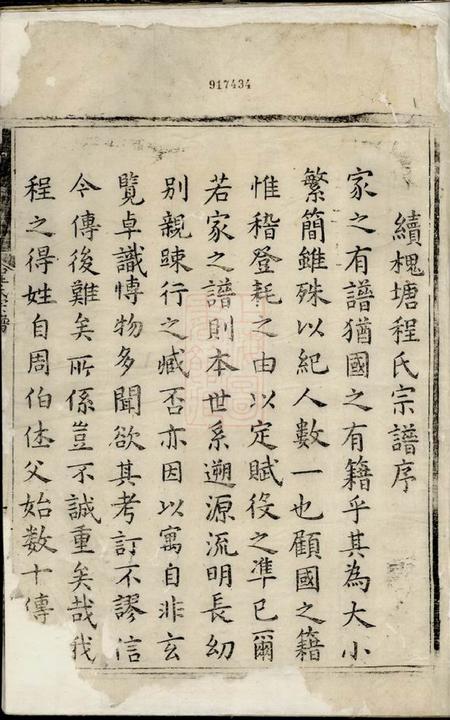 917434
續槐塘程氏宗譜序
家之有譜猶國之有籍乎其為大小
繁簡雖殊以紀人數一也顧國之籍
惟稽登耗之由以定賦役之準已爾
若家之譜則本世系遡源流明長幼
別親踈行之臧否亦因以寓自非玄
覽卓識博物多聞欲其考訂不謬信
今傳後難矣所係豈不誠重矣哉我
程之得姓自周伯休父始数十傳